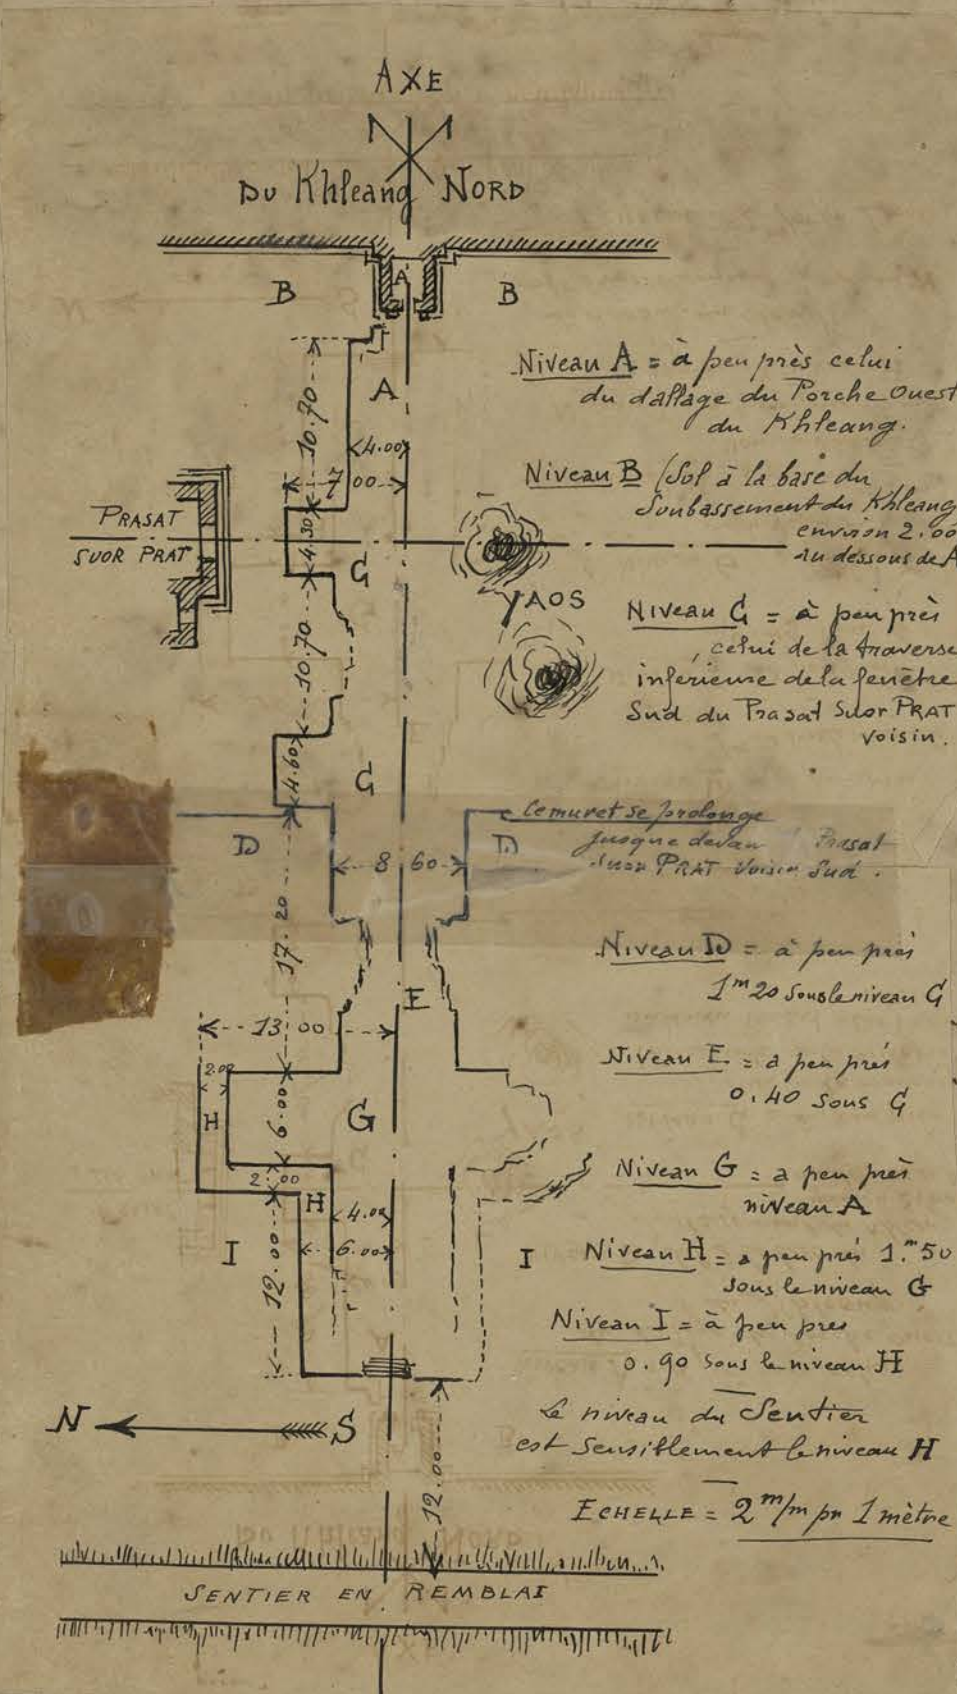 AXE
Du Khleang NORD
A
B
B
A
10.70
4.00
7 00
4.30
PRASAT
SUOR PRAT
G
YAOS
10.70
4.60
G
D
D
8 60
17.20
E
13 00
2.00
H
6.00
G
2.00
H
4.00
6.00
I
I
12.00
N
S
12.00
SENTIER EN REMBLAI
Niveau A = à peu près celui
du dallage du Porche Ouest
du Khleang.
Niveau B (Sol à la base du
Soubassement du Khleang
environ 2.00
au dessous de A
Niveau G = à peu près
celui de la traverse
inférieure de la fenêtre
Sud du Prasat Suor PRAT
voisin.
Le muret se prolonge
jusque devan Prasat
Suor PRAT Voisin Sud.
Niveau D = à peu près
1m20 sous le niveau G
Niveau E = a peu près
0.40 sous G
Niveau G = a peu près
niveau A
Niveau H = a peu près 1.m50
sous le niveau G
Niveau I = à peu pres
0.90 sous le niveau H
Le niveau du Sentier
est sensiblement le niveau H
ECHELLE = 2 m/m pr 1 mètre